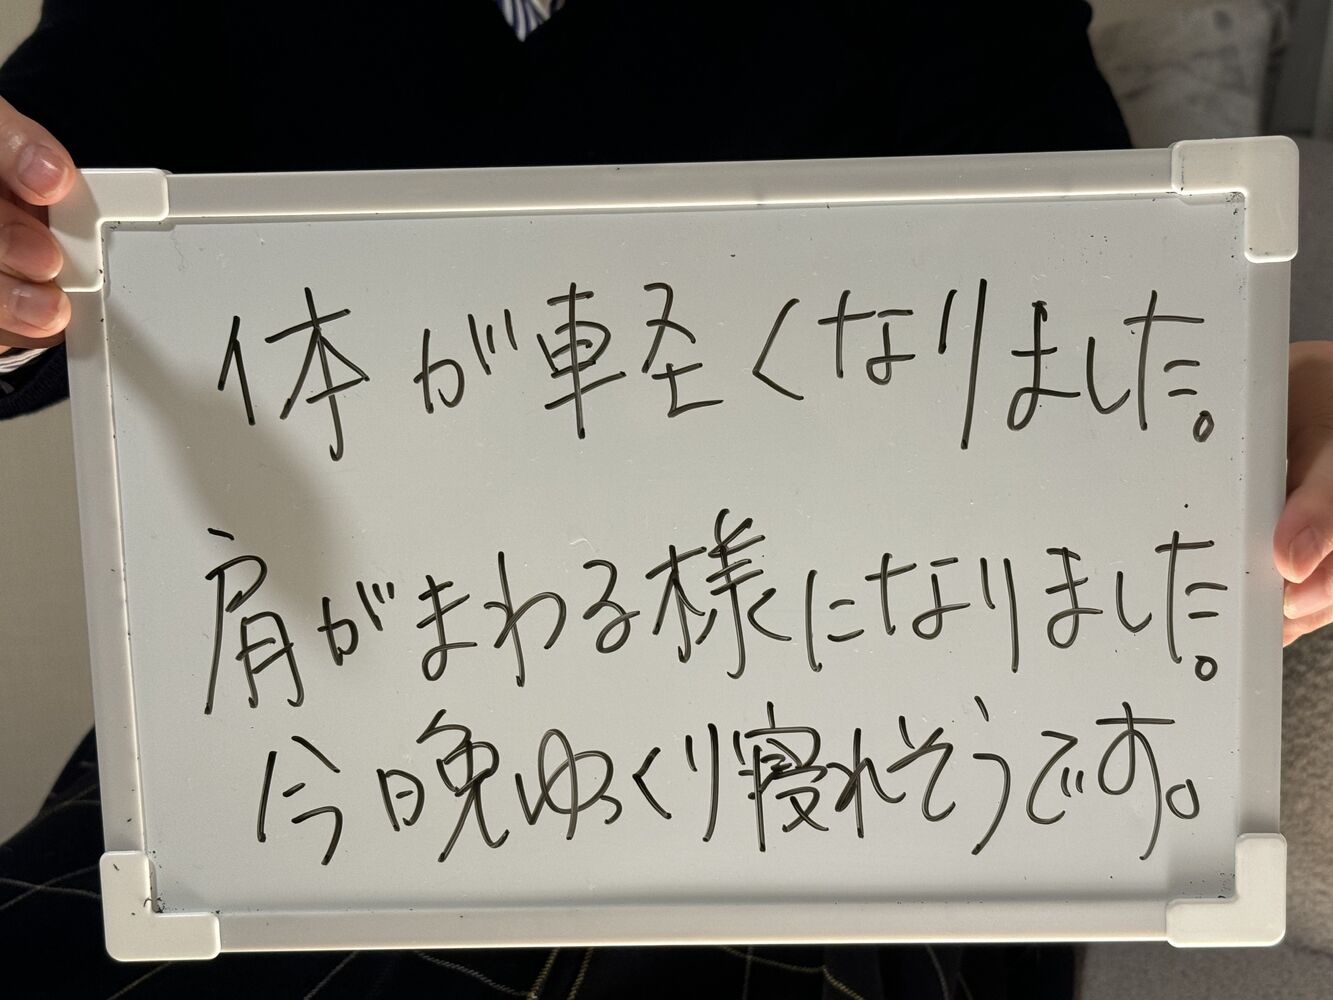 体が軽くなりました。
肩がまわる様になりました。
今晩ゆっくり寝れそうです。